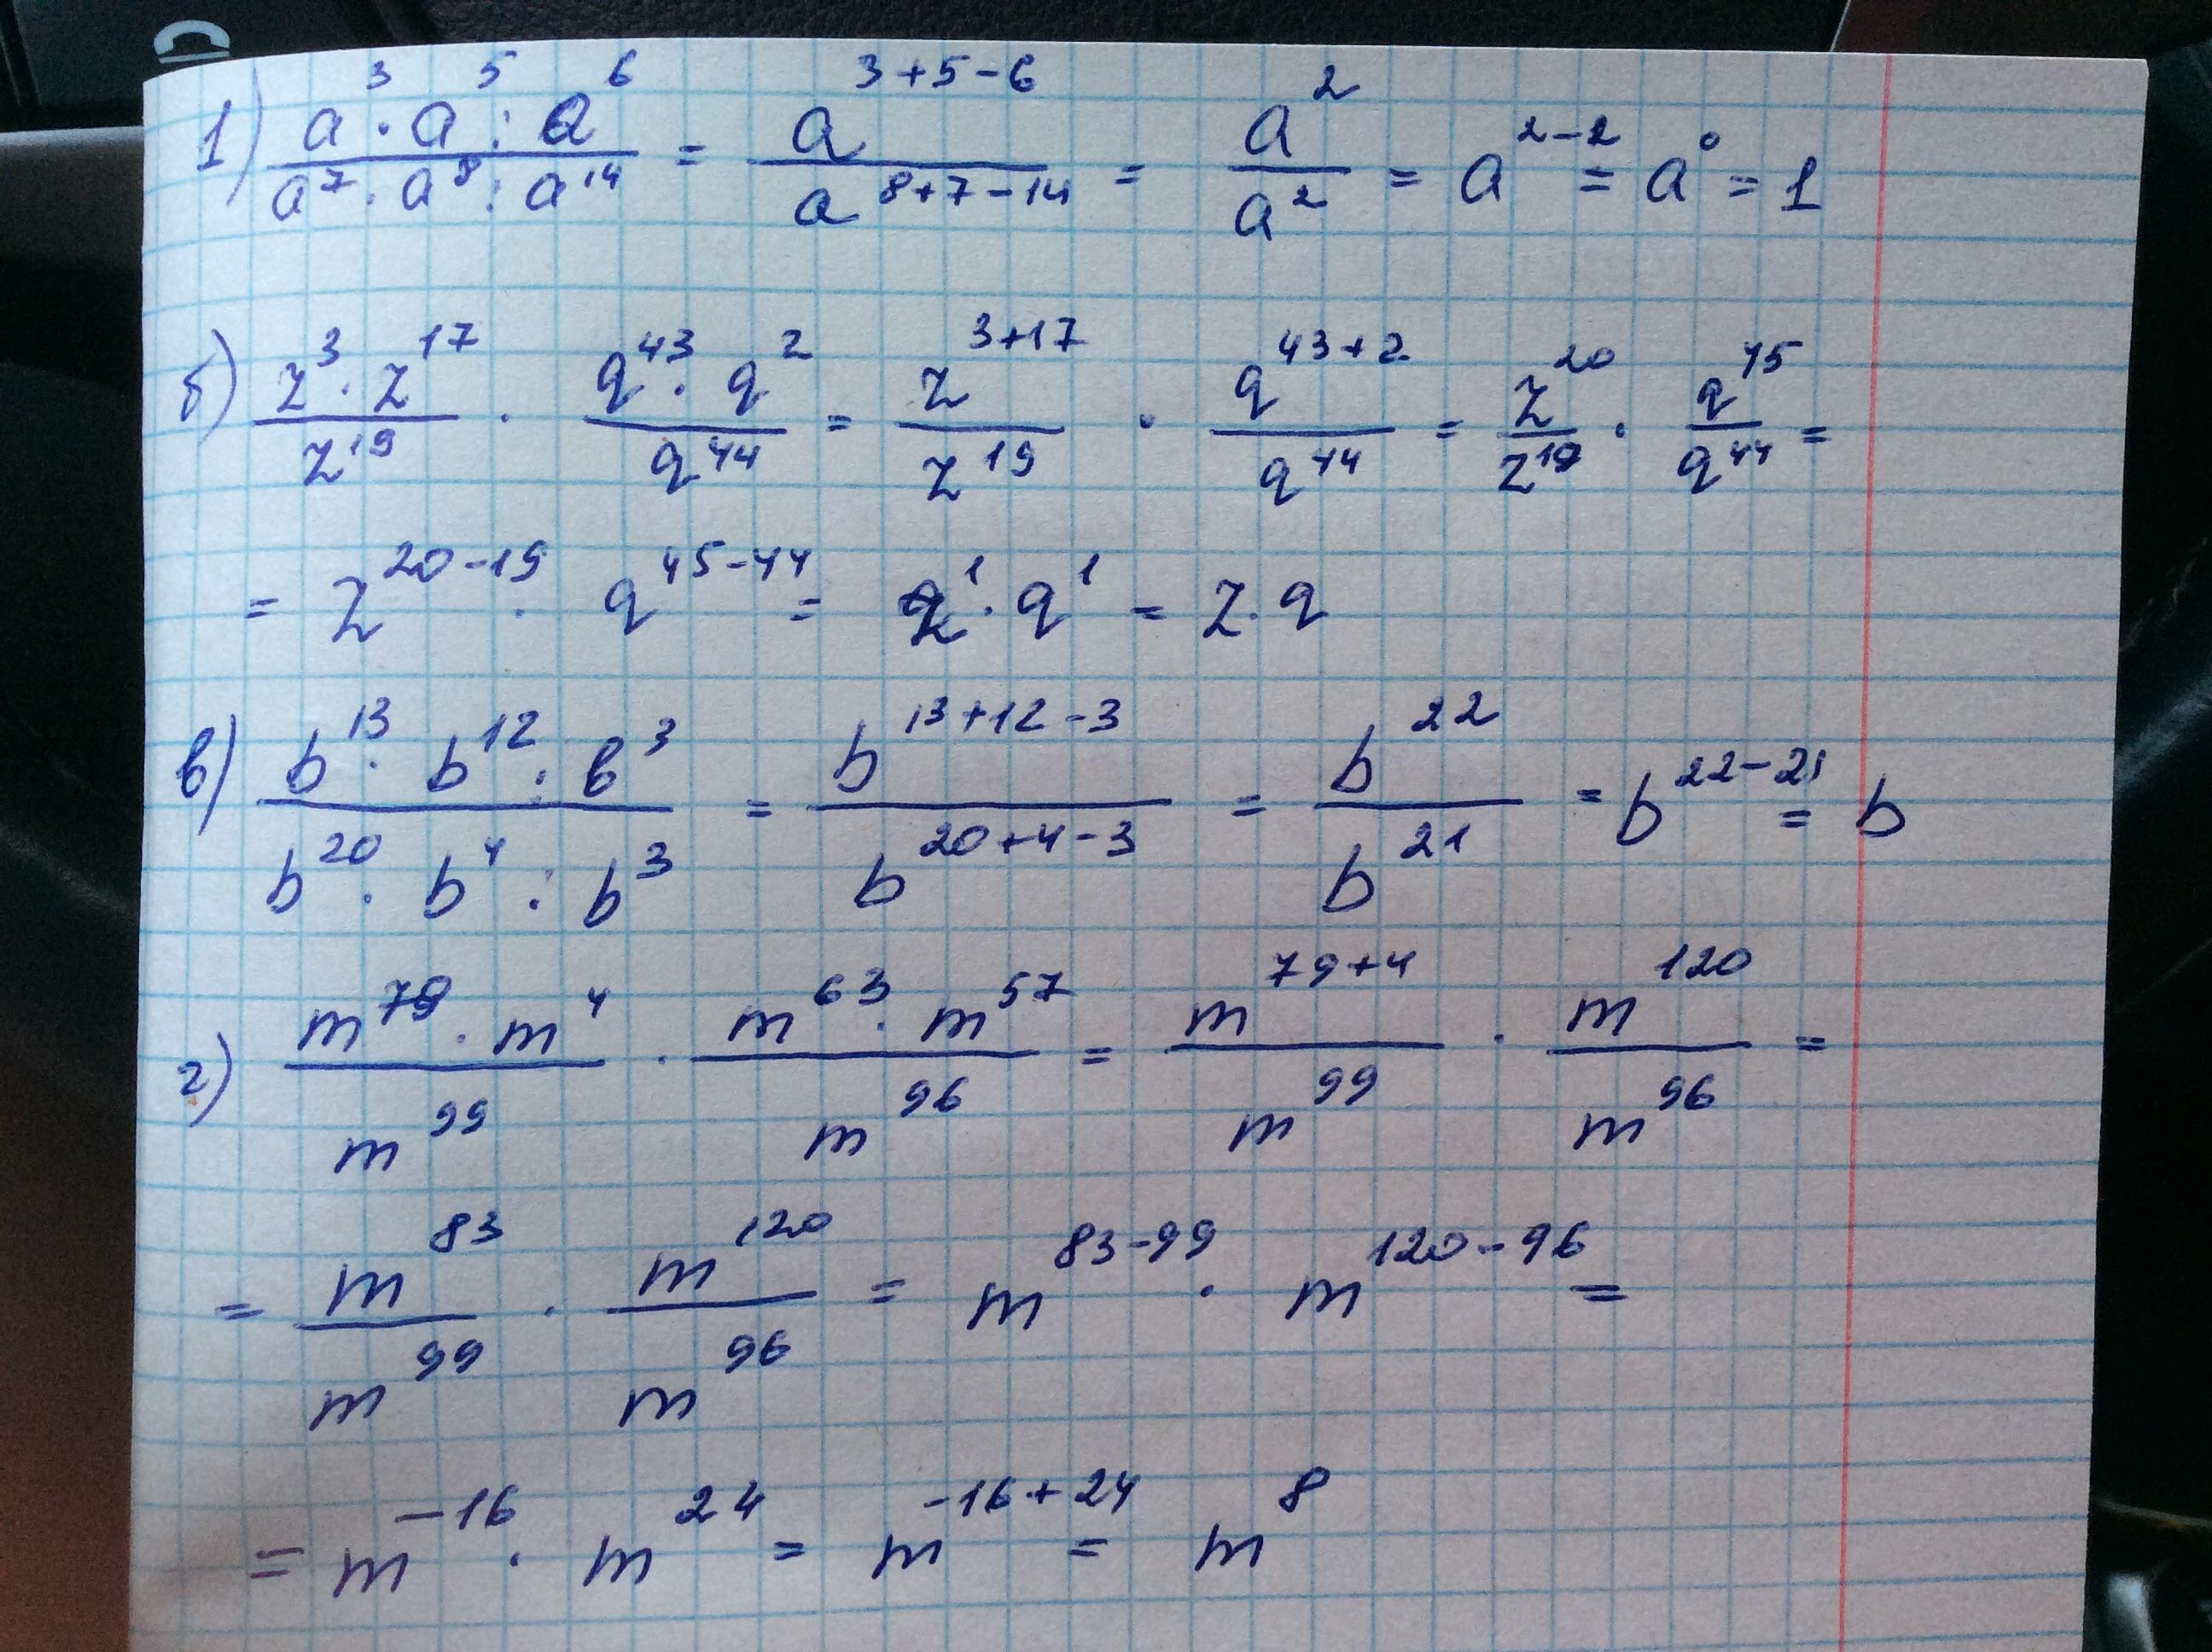 1) (a³ · a⁵ : a⁶)/(a⁷ · a⁸ : a¹⁴) = a³⁺⁵⁻⁶/a⁸⁺⁷⁻¹⁴ = a²/a² = a²⁻² = a⁰ = 1
б) (z³ · z¹⁷)/z¹⁹ · (q⁴³ · q²)/q⁴⁴ = z³⁺¹⁷/z¹⁹ · q⁴³⁺²/q⁴⁴ = z²⁰/z¹⁹ · q⁴⁵/q⁴⁴ =
= z²⁰⁻¹⁹ · q⁴⁵⁻⁴⁴ = z¹ · q¹ = z · q
в) (b¹³ · b¹² : b³)/(b²⁰ · b⁴ : b³) = b¹³⁺¹²⁻³/b²⁰⁺⁴⁻³ = b²²/b²¹ = b²²⁻²¹ = b
г) (m⁷⁹ · m⁴)/m⁹⁹ · (m⁶³ · m⁵⁷)/m⁹⁶ = m⁷⁹⁺⁴/m⁹⁹ · m¹²⁰/m⁹⁶ =
= m⁸³/m⁹⁹ · m¹²⁰/m⁹⁶ = m⁸³⁻⁹⁹ · m¹²⁰⁻⁹⁶ =
= m⁻¹⁶ · m²⁴ = m⁻¹⁶⁺²⁴ = m⁸